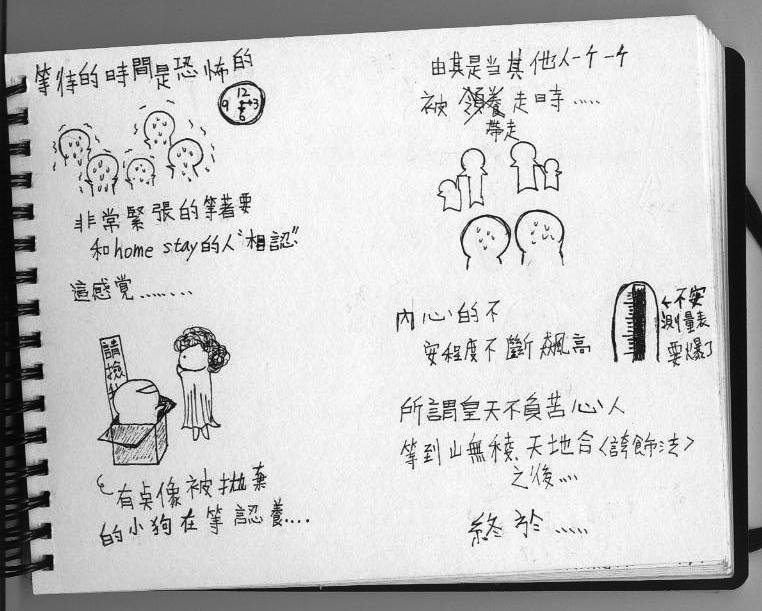 等待的時間是恐怖的
12
9 3
6
非常緊張的等著要
和home stay的人"相認"
這感覚........
請撿
ㄜ有点像被拋棄
的小狗在等認養....
由其是当其他人一个一个
被領養走時.....
帶走
內心的不
安程度不斷飆高
←不安
測量表
要爆了
所謂皇天不負苦心人
等到山無稜,天地合<誇飾法>
之後....
終於.....